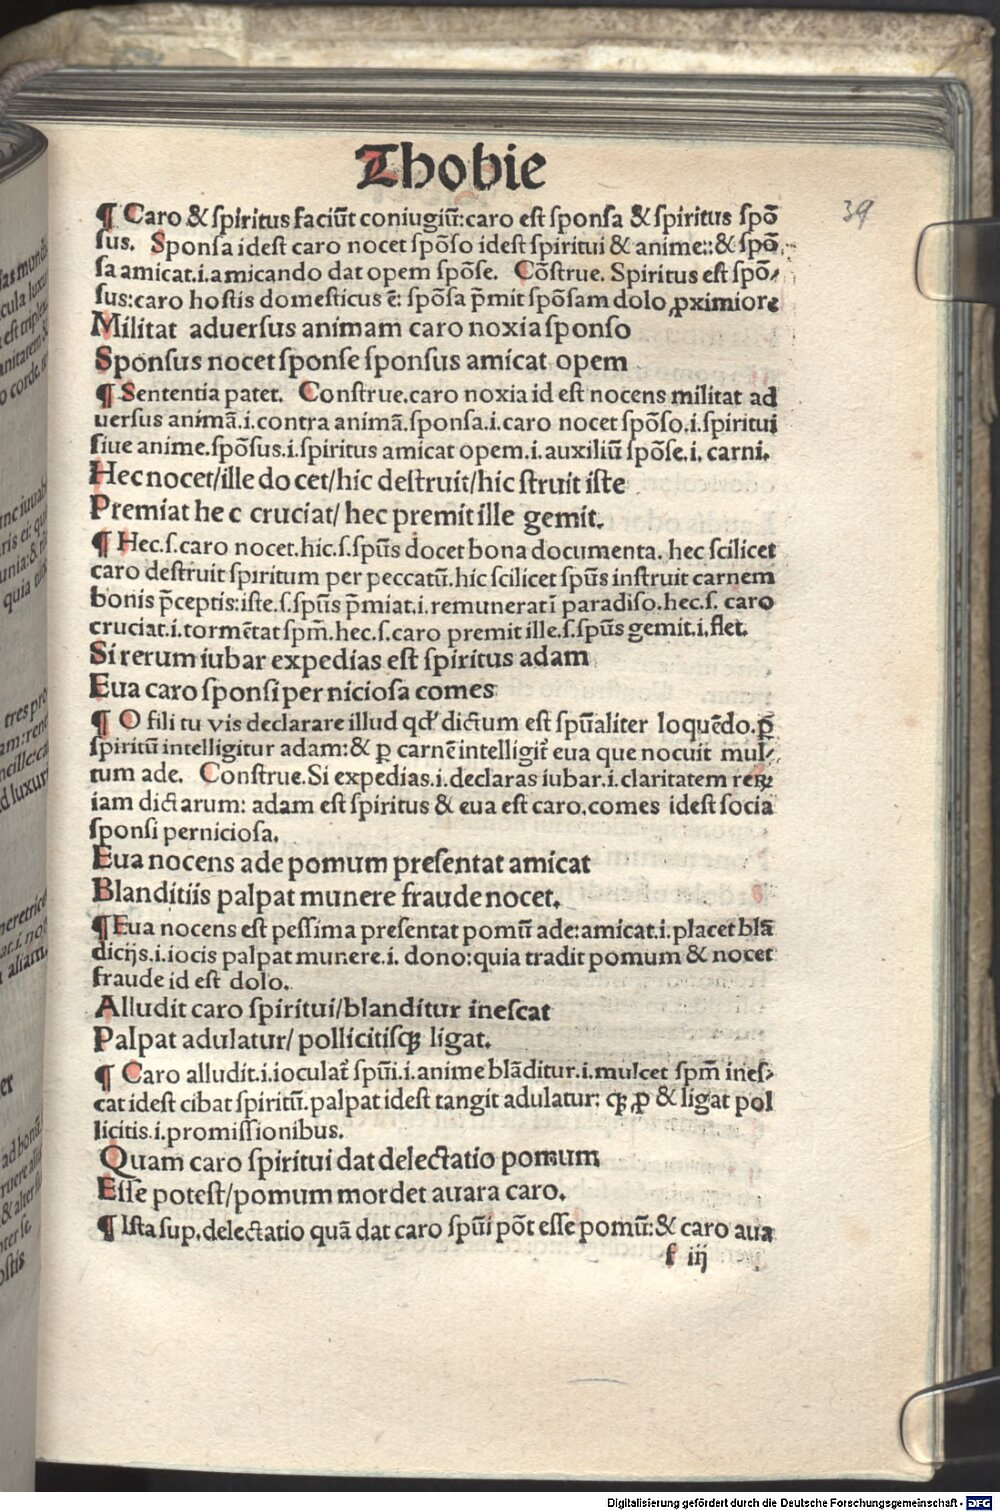 Thobie
39
¶ Caro & ſpiritus faciūt coniugiū:caro eſt ſponſa & ſpiritus ſpō
ſus. Sponſa ideſt caro nocet ſpōſo ideſt ſpiritui & anime:& ſpō
ſa amicat.i.amicando dat opem ſpōſe. Cōſtrue. Spiritus eſt ſpō⸗
ſus:caro hoſtis domeſticus ē: ſpōſa p̄mit ſpōſam dolo ꝓximiore
Militat aduerſus animam caro noxia ſponſo
Sponſus nocet ſponſe ſponſus amicat opem
¶ Sententia patet. Conſtrue.caro noxia id eſt nocens militat ad
uerſus animā.i.contra animā.ſponſa.i.caro nocet ſpōſo.i.ſpiritui
ſiue anime.ſpōſus.i.ſpiritus amicat opem.i.auxiliū ſpōſe.i. carni.
Hec nocet/ille do cet/hic deſtruit/hic ſtruit iſte
Premiat he c cruciat/ hec premit ille gemit.
¶ Hec.ſ.caro nocet.hic.ſ.ſpūs docet bona documenta. hec ſcilicet
caro deſtruit ſpiritum per peccatū.hic ſcilicet ſpūs inſtruit carnem
bonis p̄ceptis:iſte.ſ.ſpūs p̄miat.i.remunerat ī paradiſo.hec.ſ. caro
cruciat.i.tormētat ſpm̄.hec.ſ.caro premit ille.ſ.ſpūs gemit.i.flet.
Si rerum iubar expedias eſt ſpiritus adam
Eua caro ſponſi per nicioſa comes
¶ O fili tu vis declarare illud qd' dictum eſt ſpūaliter loquēdo.ꝑ
ſpiritū intelligitur adam:& ꝑ carnē intelligit᷑ eua que nocuit mul⸗
tum ade. Conſtrue.Si expedias.i.declaras iubar.i.claritatem reꝝ
iam dictarum: adam eſt ſpiritus & eua eſt caro.comes ideſt ſocia
ſponſi pernicioſa.
Eua nocens ade pomum preſentat amicat
Blanditiis palpat munere fraude nocet.
¶ Eua nocens eſt peſſima preſentat pomū ade:amicat.i.placet blā
dicijs.i.iocis palpat munere.i. dono:quia tradit pomum & nocet
fraude id eſt dolo.
Alludit caro ſpiritui/blanditur ineſcat
Palpat adulatur/ polliciti­ſqꝫ ligat.
¶ Caro alludit.i.ioculat᷑ ſpūi.i.anime blāditur.i.mulcet ſpm̄ ineſ⸗
cat ideſt cibat ſpiritū.palpat ideſt tangit adulatur: qꝫ ꝓ & ligat pol
licitis.i.promiſſionibus.
Quam caro ſpiritui dat delectatio pomum
Eſſe poteſt/pomum mordet auara caro.
¶ Iſta ſup.delectatio quā dat caro ſpūi pōt eſſe pomū:& caro aua
f iij
Digitalisierung gefördert durch die Deutsche Forschungsgemeinschaft - DFG